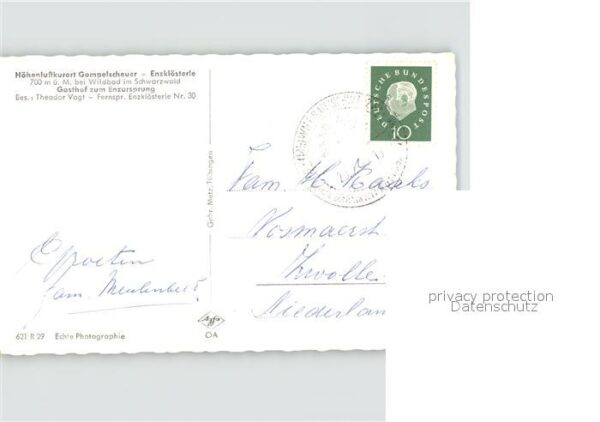 Höhenluftkurort Gompelscheuer - Enzklösterle
700 m ü. M. bei Wildbad im Schwarzwald
Gasthof zum Enzursprung
Bes.: Theodor Vogt - Fernspr. Enzklösterle Nr. 30
DEUTSCHE BUNDESPOST
10
Gebr. Metz, Tübingen
Fam. H.
Zwolle
Niederlan
Groeten
fam. Meulenbelt
621 R 29 Echte Photographie
Agfa
OA
privacy protection
Datenschutz